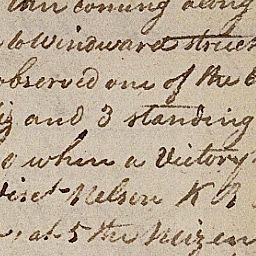 coming along
to Windward struck
observed one of the
and 3 standing
when a Victory
Visct Nelson K B
at 5 the Mizen